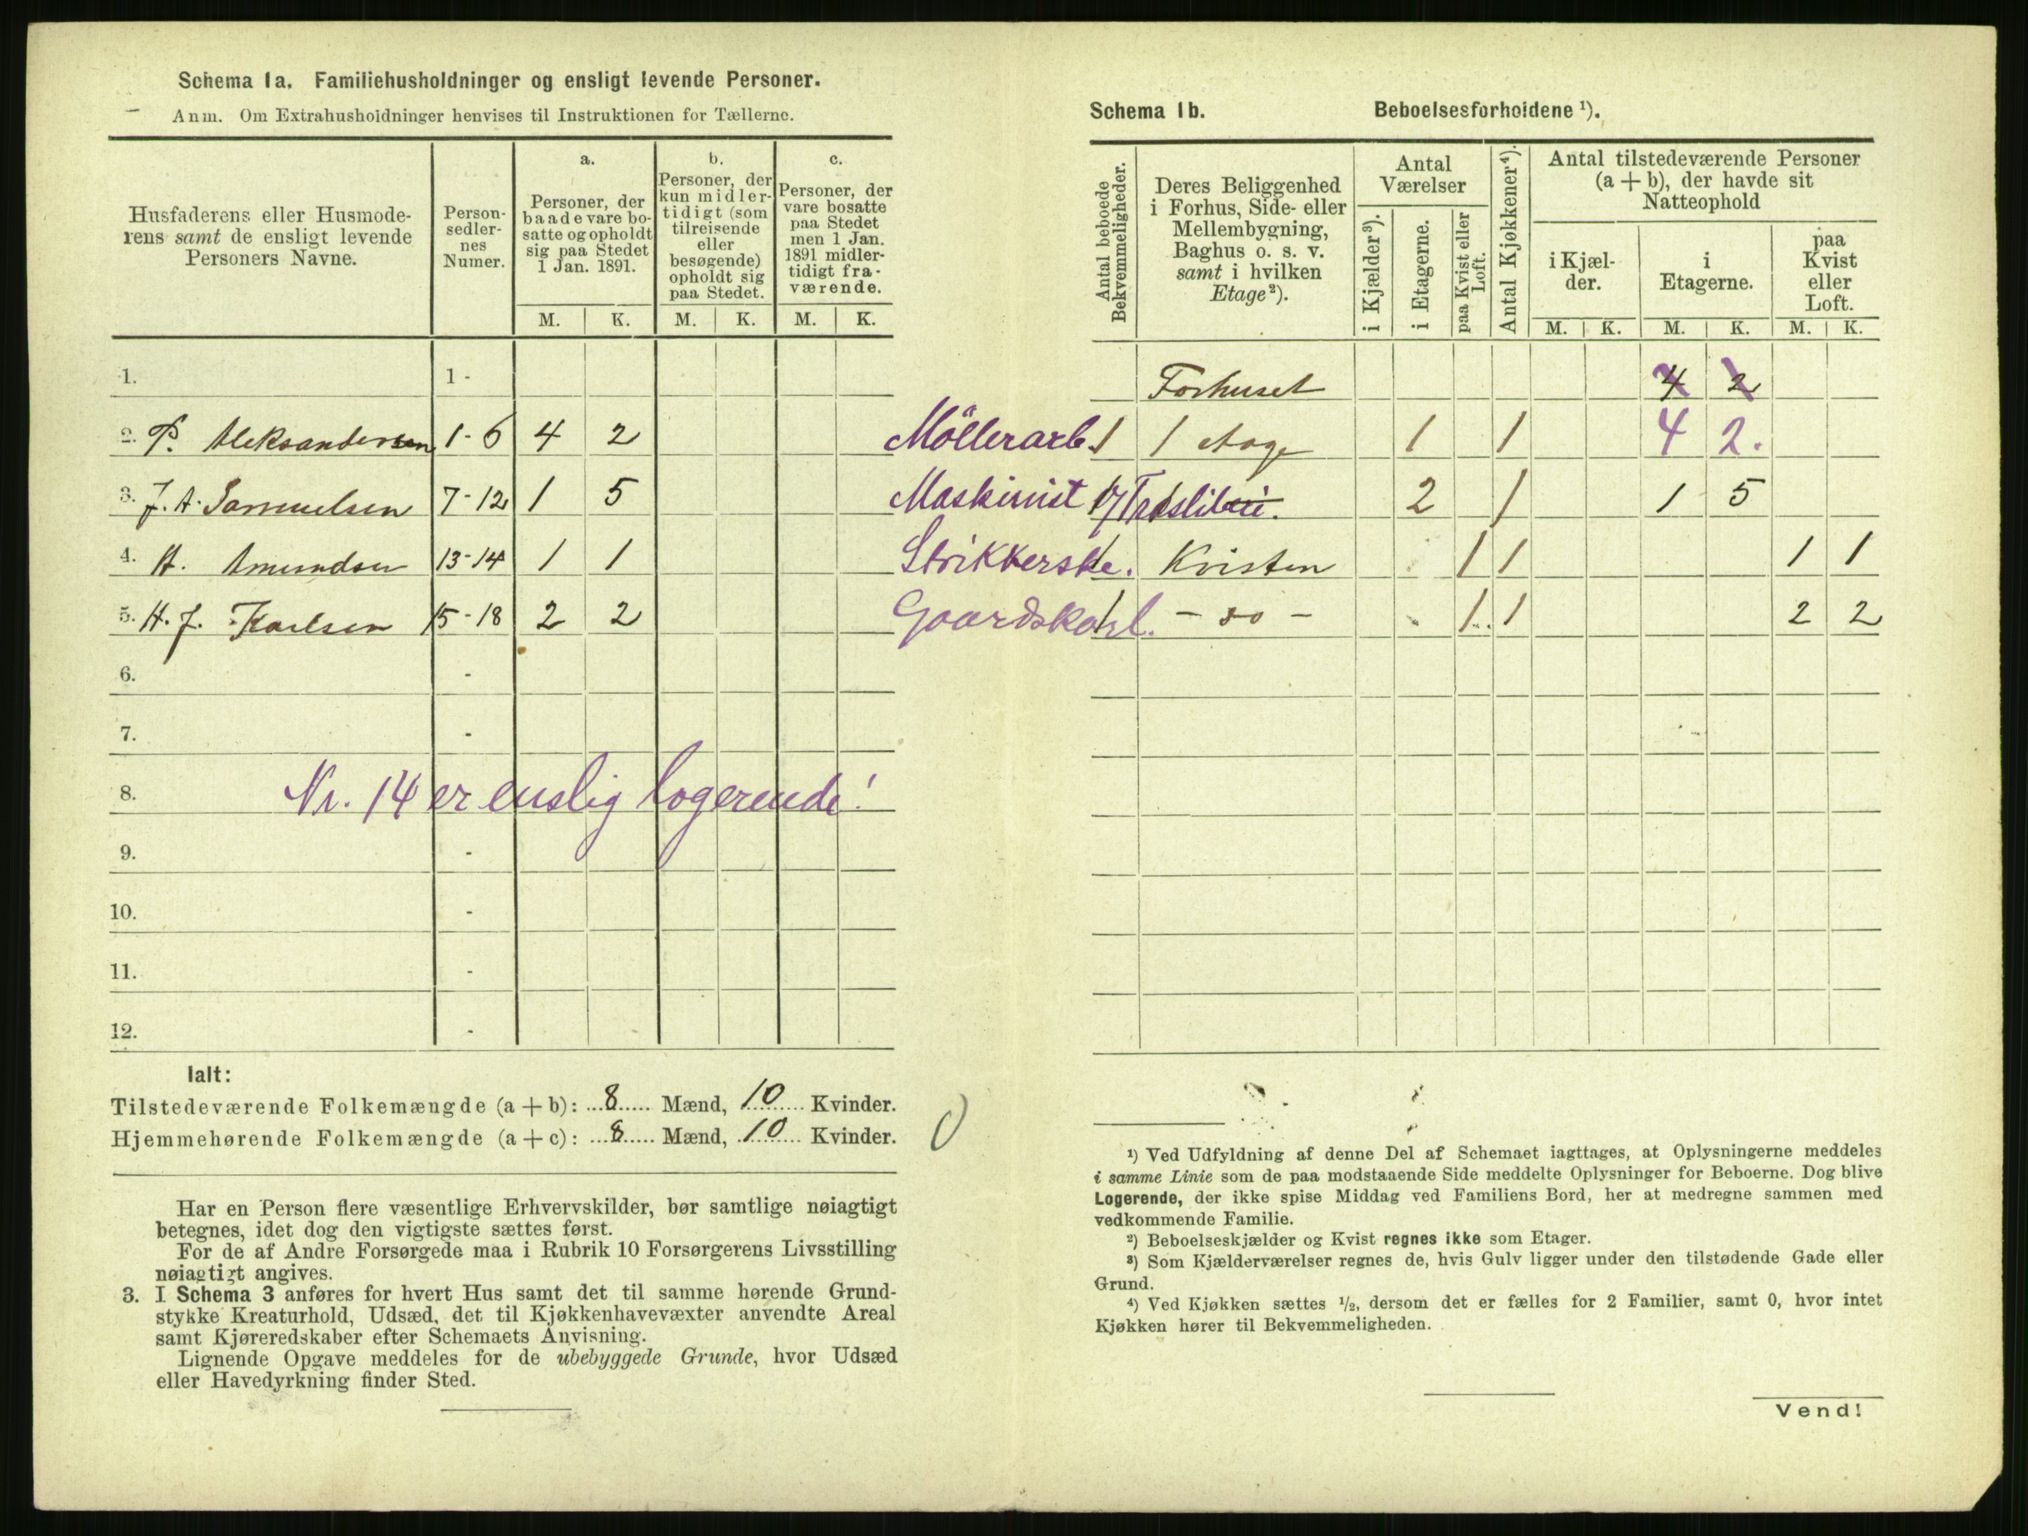 Schema 1a. Familiehusholdninger og ensligt levende Personer.
Anm. Om Extrahusholdninger henvises til Instruktionen for Tællerne.
Husfaderens eller Husmoderens samt de ensligt levende Personers Navne.
Personsedlernes Numer.
a.
Personer, der baade vare bosatte og opholdt sig paa Stedet 1 Jan. 1891.
b.
Personer, der kun midlertidigt (som tilreisende eller besøgende) opholdt sig paa Stedet.
c.
Personer, der vare bosatte paa Stedet men 1 Jan. 1891 midlertidigt fraværende.
M. K. M. K. M. K.
1. 1 -
2. P. Aleksandersen 1-6 4 2
3. J. A. Samuelsen 7-12 1 5
4. A. Amundsen 13-14 1 1
5. H. J. Karlsen 15-18 2 2
6. -
7. -
8. Nr. 14 er enslig logerende!
9. -
10. -
11. -
12. -
Ialt:
Tilstedeværende Folkemængde (a + b): 8 Mænd, 10 Kvinder.
Hjemmehørende Folkemængde (a + c): 8 Mænd, 10 Kvinder.
Har en Person flere væsentlige Erhvervskilder, bør samtlige nøiagtigt
betegnes, idet dog den vigtigste sættes først.
For de af Andre Forsørgede maa i Rubrik 10 Forsørgerens Livsstilling
nøiagtigt angives.
3. I Schema 3 anføres for hvert Hus samt det til samme hørende Grund-
stykke Kreaturhold, Udsæd, det til Kjøkkenhavevæxter anvendte Areal
samt Kjøreredskaber efter Schemaets Anvisning.
Lignende Opgave meddeles for de ubebyggede Grunde, hvor Udsæd
eller Havedyrkning finder Sted.
Schema 1b. Beboelsesforholdene ¹).
Antal beboede Bekvemmeligheder.
Deres Beliggenhed i Forhus, Side- eller Mellembygning, Baghus o. s. v. samt i hvilken Etage²).
Antal Værelser
i Kjælder³).
i Etagerne.
paa Kvist eller Loft.
Antal Kjøkkener⁴).
Antal tilstedeværende Personer (a + b), der havde sit Natteophold
i Kjælder.
i Etagerne.
paa Kvist eller Loft.
M. K. M. K. M. K.
Forhuset 4 2
Möllerarb. 1 1 etage 1 1 4 2.
Maskinist 2 1 1 5
Strikkerske. 1 Kvisten 1 1 1 1
Gaardskarl. 1 - do - 1 1 2 2
¹) Ved Udfyldning af denne Del af Schemaet iagttages, at Oplysningerne meddeles
i samme Linie som de paa modstaaende Side meddelte Oplysninger for Beboerne. Dog blive
Logerende, der ikke spise Middag ved Familiens Bord, her at medregne sammen med
vedkommende Familie.
²) Beboelseskjælder og Kvist regnes ikke som Etager.
³) Som Kjælderværelser regnes de, hvis Gulv ligger under den tilstødende Gade eller
Grund.
⁴) Ved Kjøkken sættes ½, dersom det er fælles for 2 Familier, samt 0, hvor intet
Kjøkken hører til Bekvemmeligheden.
Vend!